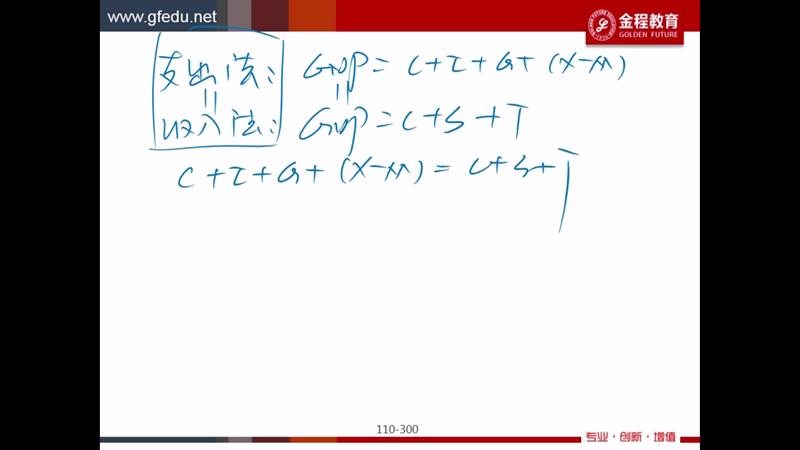 www.gfedu.net
金程教育
GOLDEN FUTURE
支出法: GDP = C+I+G+(X-M)
收入法: GDP = C+S+T
C+I+G+(X-M) = C+S+T
110-300
专业·创新·增值